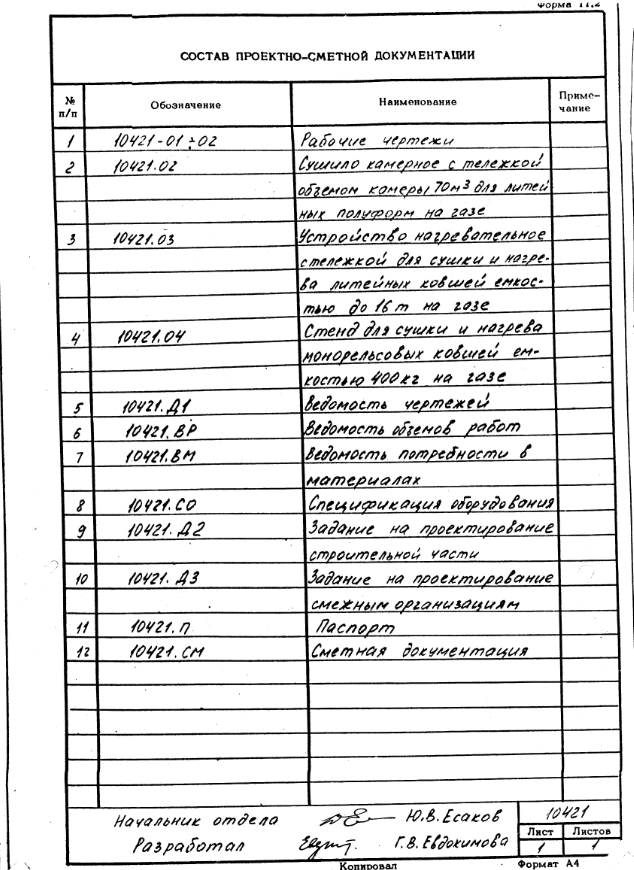 Форма 11.2
СОСТАВ ПРОЕКТНО-СМЕТНОЙ ДОКУМЕНТАЦИИ
№ п/п Обозначение Наименование Приме-чание
1 10421-01÷02 Рабочие чертежи
2 10421.02 Сушило камерное с тележкой
объемом камеры 70м³ для литей
ных полуформ на газе
3 10421.03 Устройство нагревательное
с тележкой для сушки и нагре-
ва литейных ковшей емкос-
тью до 16т на газе
4 10421.04 Стенд для сушки и нагрева
монорельсовых ковшей ем-
костью 400кг на газе
5 10421.Д1 Ведомость чертежей
6 10421.ВР Ведомость объемов работ
7 10421.ВМ Ведомость потребности в
материалах
8 10421.СО Спецификация оборудования
9 10421.Д2 Задание на проектирование
строительной части
10 10421.Д3 Задание на проектирование
смежным организациям
11 10421.П Паспорт
12 10421.СМ Сметная документация
Начальник отдела Ю.В.Есаков 10421
Разработал Г.В.Евдокимова Лист 1 Листов 1
Копировал Формат А4